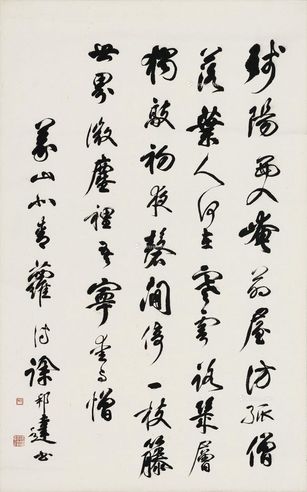 殘陽西入崦茅屋訪孤僧
落葉人何在寒雲路幾層
獨敲初夜磬閒倚一枝籐
世界微塵裡吾寧愛與憎
義山北青蘿詩徐邦達書